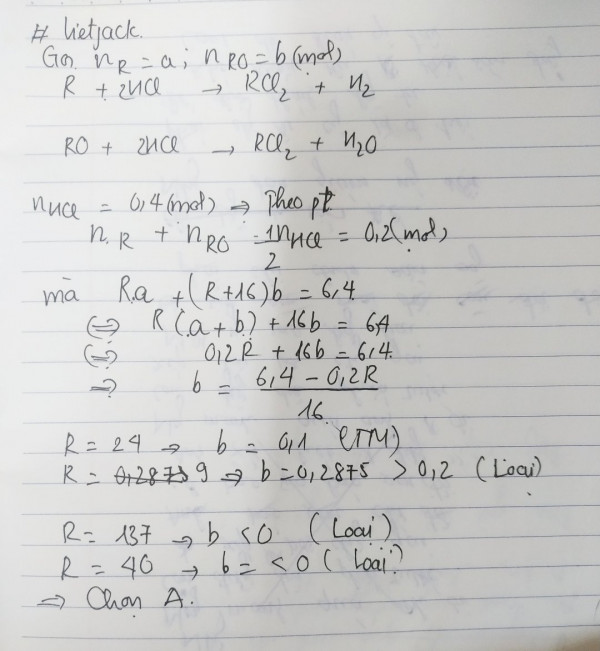 # Vietjack.
Gọi nR = a; nRO = b (mol)
R + 2HCl → RCl2 + H2
RO + 2HCl → RCl2 + H2O
nHCl = 0,4 (mol) ⇒ Theo pt
nR + nRO = 1/2 nHCl = 0,2 (mol)
mà R.a + (R+16)b = 6,4
⇔ R(a + b) + 16b = 6,4
⇔ 0,2R + 16b = 6,4
⇒ b = (6,4 - 0,2R)/16
R = 24 → b = 0,1 (TM)
R = 9 ⇒ b = 0,2875 > 0,2 (Loại)
R = 137 → b < 0 (Loại)
R = 40 → b = < 0 (Loại)
⇒ Chọn A.